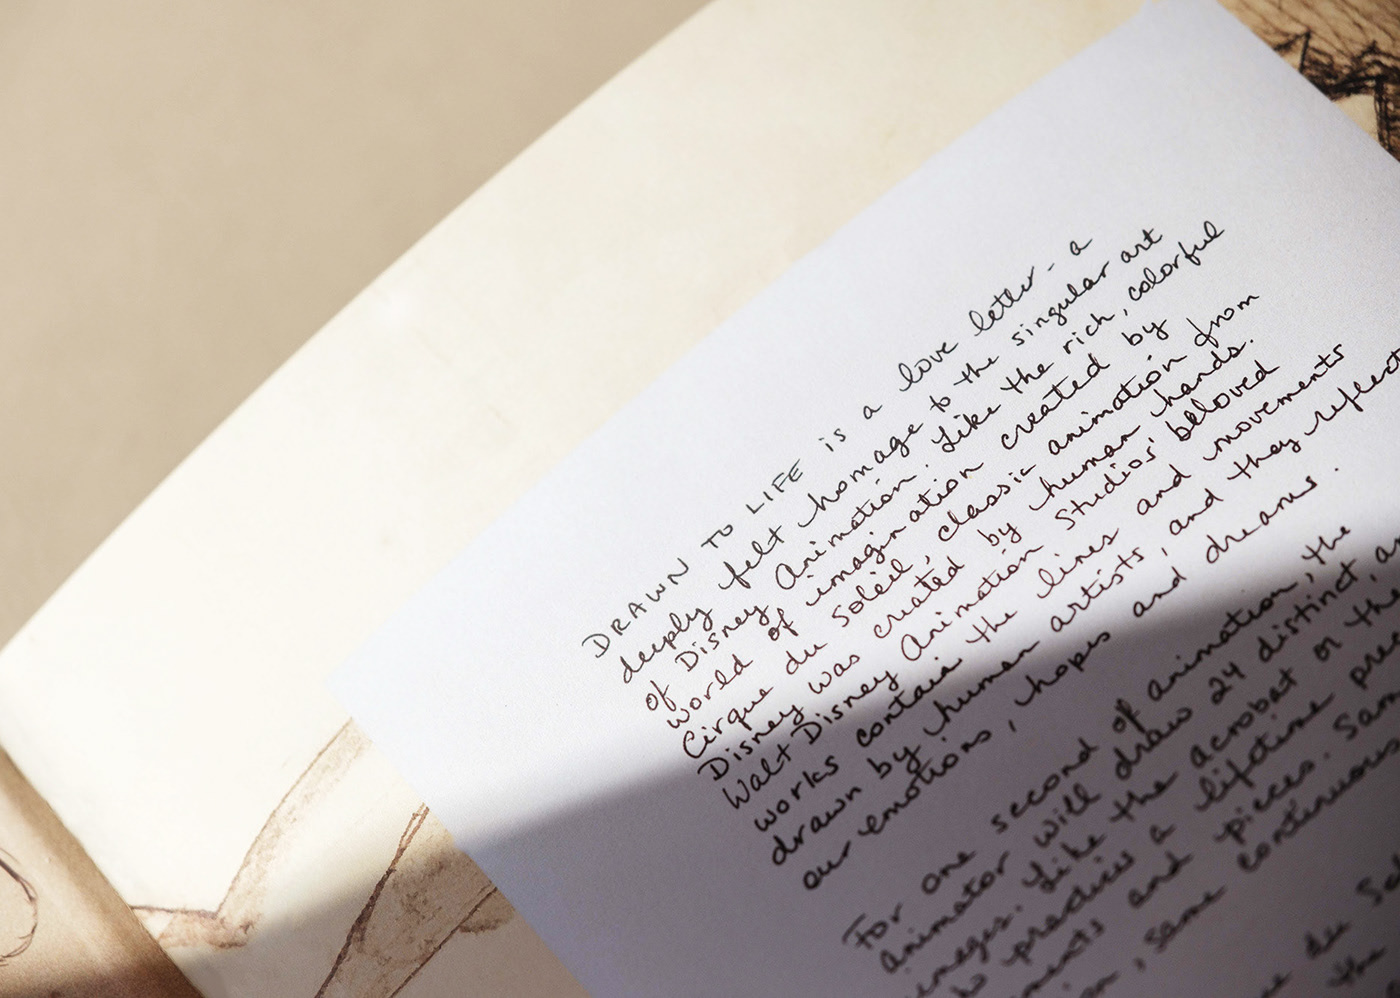 DRAWN TO LIFE is a love letter - a
deeply felt homage to the singular art
of Disney Animation. Like the rich, colorful
world of imagination created by
Cirque du Soleil, classic animation from
Disney was created by human hands.
Walt Disney Animation Studios' beloved
works contain the lines and movements
drawn by human artists, and they reflect
our emotions, hopes and dreams.
For one second of animation, the
animator will draw 24 distinct
images. Like the acrobat or the
to practices a lifetime
and pieces. Same
, same continuous
du
the